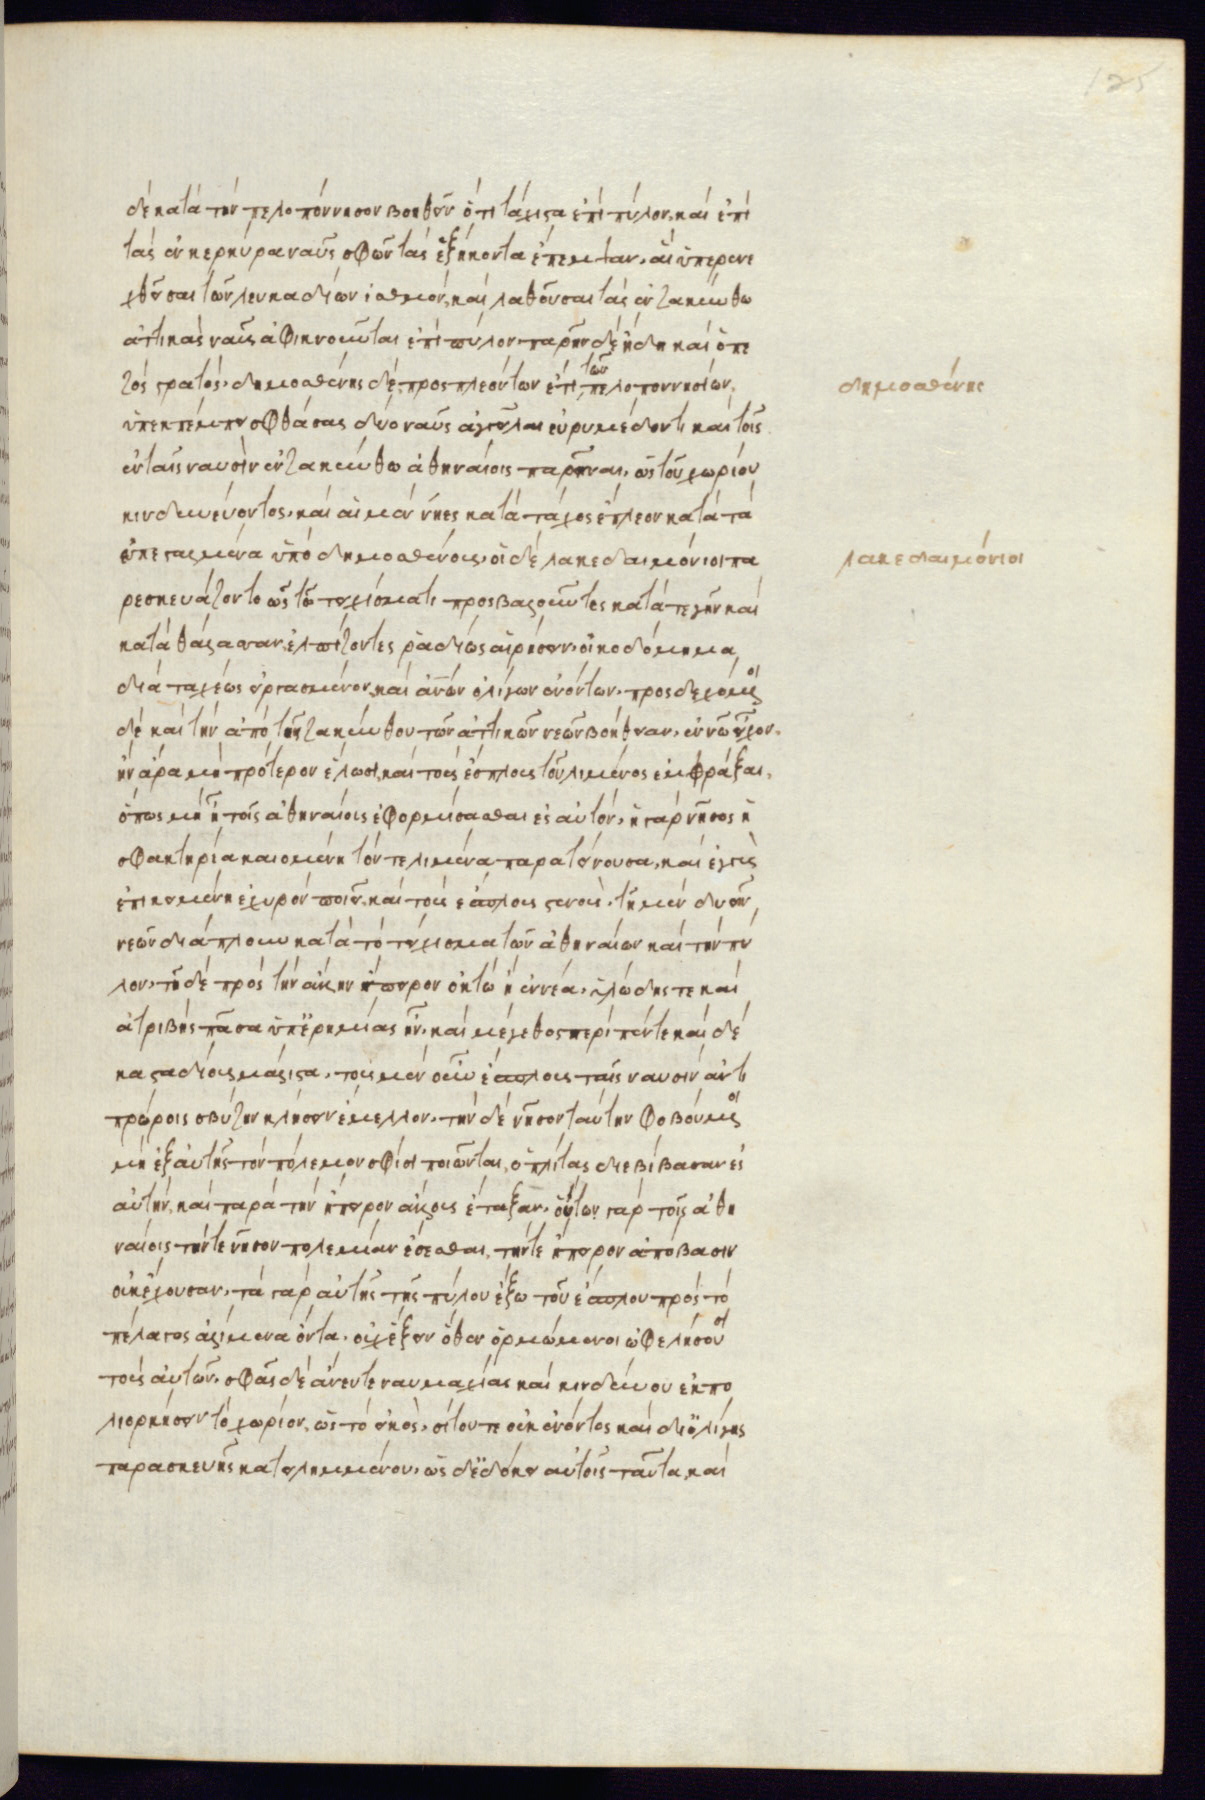 125
δὲ κατὰ τὴν πελοπόννησον βοηθεῖν ὅτι τάχιστα ἐπὶ πύλον, καὶ ἐπὶ
τὰς ἐν κερκύρα ναῦς σφῶν τὰς ἑξήκοντα ἔπεμψαν, αἳ ὑπερενε
χθεῖσαι τῶν λευκαδίων ἰσθμόν, καὶ λαθοῦσαι τὰς ἐν ζακύνθω
ἀττικὰς ναῦς ἀφικνοῦνται ἐπὶ πύλον· παρῆν δὲ ἤδη καὶ ὁ πε
ζὸς στρατός· δημοσθένης δὲ προσπλεόντων ἔτι τῶν πελοποννησίων,
δημοσθένης
ὑπεκπέμπει φθάσας δύο ναῦς ἀγγεῖλαι εὐρυμέδοντι καὶ τοῖς
ἐν ταῖς ναυσὶν ἐν ζακύνθω ἀθηναίοις παρεῖναι, ὡς τοῦ χωρίου
κινδυνεύοντος, καὶ αἱ μὲν νῆες κατὰ τάχος ἔπλεον κατὰ τὰ
ἐπεσταλμένα ὑπὸ δημοσθένους, οἱ δὲ λακεδαιμόνιοι πα
λακεδαιμόνιοι
ρεσκευάζοντο ὡς τῶ τειχίσματι προσβαλοῦντες κατά τε γῆν καὶ
κατὰ θάλασσαν, ἐλπίζοντες ῥαδίως αἱρήσειν οἰκοδόμημα
διὰ ταχέως εἰργασμένον, καὶ ἀνῶν ὀλίγων ἐνόντων· προσδεχόμενοι
δὲ καὶ τὴν ἀπὸ τῆς ζακύνθου τῶν ἀττικῶν νεῶν βοήθειαν, ἐν νῶ εἶχον,
ἢν ἄρα μὴ πρότερον ἕλωσι, καὶ τοὺς ἔσπλους τοῦ λιμένος ἐμφράξαι,
ὅπως μὴ ἦ τοῖς ἀθηναίοις ἐφορμίσασθαι ἐς αὐτόν, ἡ γὰρ νῆσος ἡ
σφακτηρία καλουμένη τόν τε λιμένα παρατείνουσα, καὶ ἐγγὺς
ἐπικειμένη ἐχυρὸν ποιεῖ, καὶ τοὺς ἔσπλους στενούς· τῆ μὲν δυοῖν
νεῶν διάπλουν κατὰ τὸ τείχισμα τῶν ἀθηναίων καὶ τὴν πύ
λον, τῆ δὲ πρὸς τὴν ἄλλην ἤπειρον ὀκτὼ ἢ ἐννέα, ὑλώδης τε καὶ
ἀτριβὴς πᾶσα ὑπ' ἐρημίας ἦν, καὶ μέγεθος περὶ πέντε καὶ δέ
κα σταδίους μάλιστα, τοὺς μὲν οὖν ἔσπλους ταῖς ναυσὶν ἀντι
πρώροις βύζην κλήσειν ἔμελλον, τὴν δὲ νῆσον ταύτην φοβούμενοι
μὴ ἐξ αὐτῆς τὸν πόλεμον σφίσι ποιῶνται, ὁπλίτας διεβίβασαν ἐς
αὐτὴν, καὶ παρὰ τὴν ἤπειρον ἄλλους ἔταξαν, οὕτω γὰρ τοῖς ἀθη
ναίοις τήν τε νῆσον πολεμίαν ἔσεσθαι, τήν τε ἤπειρον ἀπόβασιν
οὐκ ἔχουσαν, τὰ γὰρ αὐτῆς τῆς πύλου ἔξω τοῦ ἔσπλου πρὸς τὸ
πέλαγος ἀλίμενα ὄντα, οὐχ ἕξειν ὅθεν ὁρμώμενοι ὠφελήσουσι
τοὺς αὐτῶν, σφᾶς δὲ ἄνευ τε ναυμαχίας καὶ κινδύνου ἐκπο
λιορκήσειν τὸ χωρίον, ὡς τὸ εἰκός, σίτου τε οὐκ ἐνόντος καὶ δι' ὀλίγης
παρασκευῆς κατειλημμένου, ὡς δ' ἐδόκει αὐτοῖς ταῦτα, καὶ